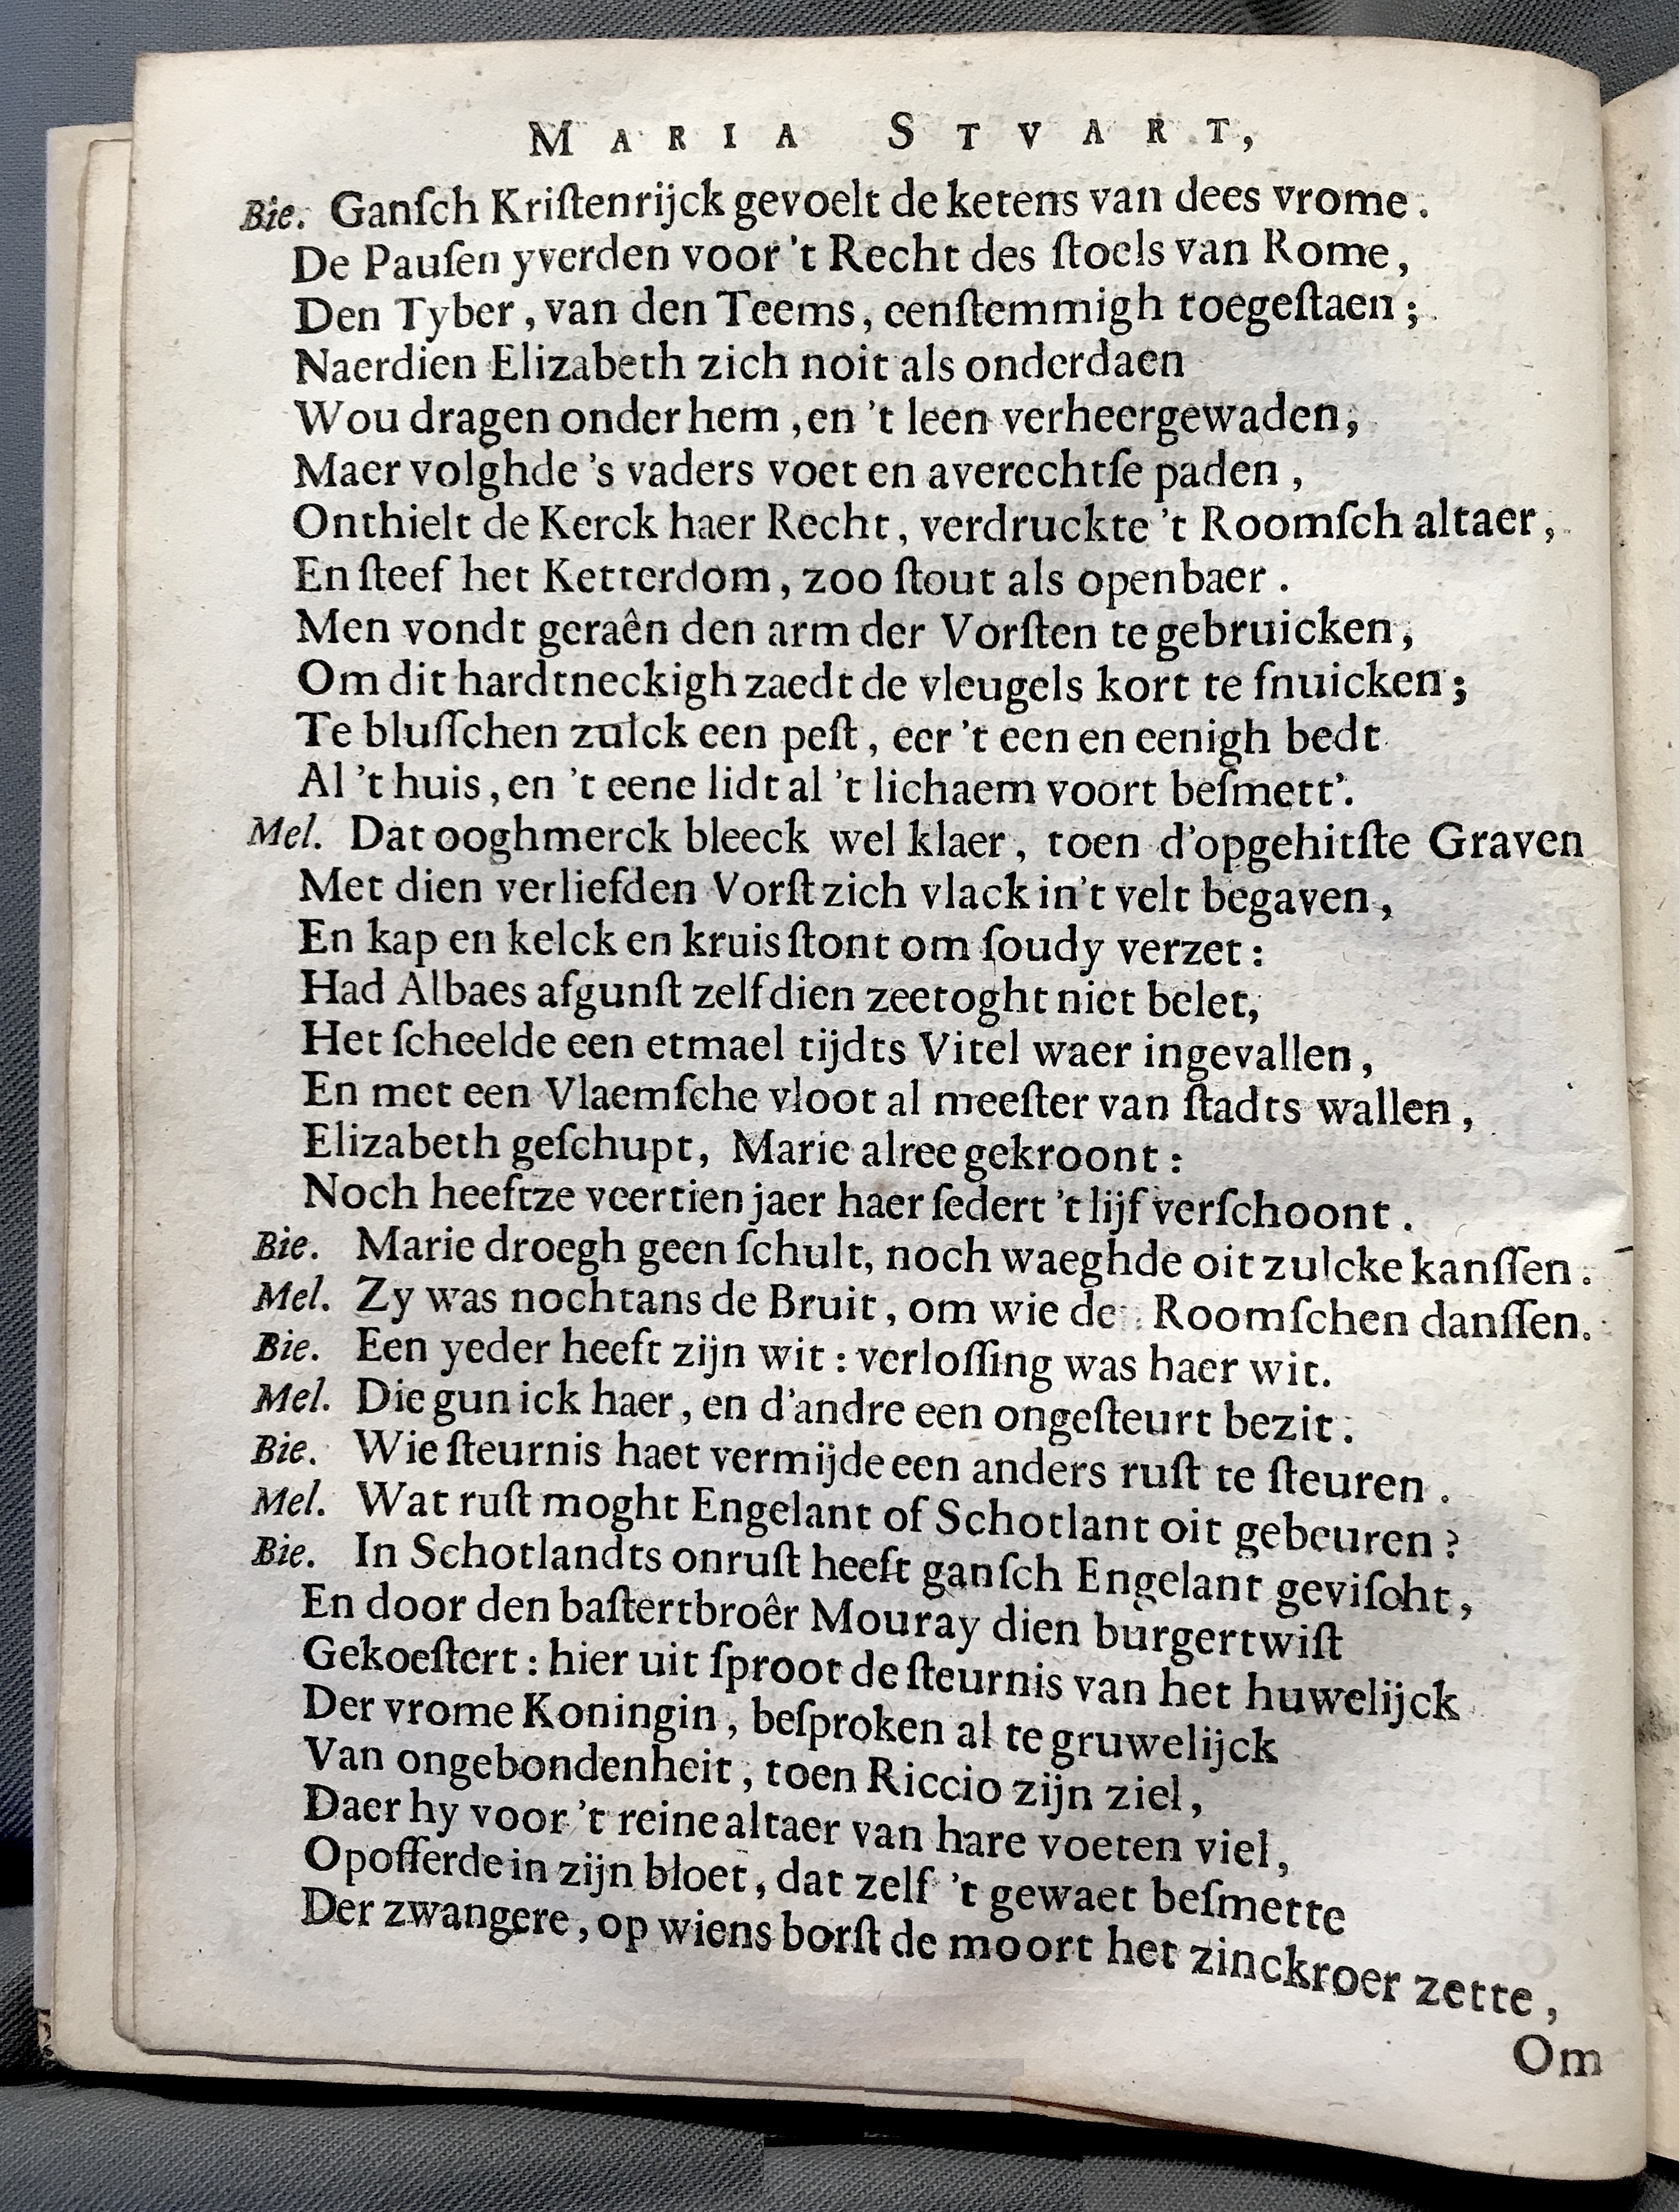 MARIA STVART,
Bie. Ganſch Kriſtenrijck gevoelt de ketens van dees vrome.
De Pauſen yverden voor 't Recht des ſtoels van Rome,
Den Tyber, van den Teems, eenſtemmigh toegeſtaen;
Naerdien Elizabeth zich noit als onderdaen
Wou dragen onder hem, en 't leen verheergewaden;
Maer volghde 's vaders voet en averechtſe paden,
Onthielt de Kerck haer Recht, verdruckte 't Roomſch altaer,
En ſteef het Ketterdom, zoo ſtout als openbaer.
Men vondt geraên den arm der Vorſten te gebruicken,
Om dit hardtneckigh zaedt de vleugels kort te ſnuicken;
Te bluſſchen zulck een peſt, eer 't een en eenigh bedt
Al 't huis, en 't eene lidt al 't lichaem voort beſmett'.
Mel. Dat ooghmerck bleeck wel klaer, toen d'opgehitſte Graven
Met dien verliefden Vorſt zich vlack in't velt begaven,
En kap en kelck en kruis ſtont om ſoudy verzet:
Had Albaes afgunſt zelf dien zeetoght niet belet,
Het ſcheelde een etmael tijdts Vitel waer ingevallen,
En met een Vlaemſche vloot al meeſter van ſtadts wallen,
Elizabeth geſchupt, Marie alree gekroont:
Noch heeftze veertien jaer haer ſedert 't lijf verſchoont.
Bie. Marie droegh geen ſchult, noch waeghde oit zulcke kanſſen.
Mel. Zy was nochtans de Bruit, om wie de Roomſchen danſſen.
Bie. Een yeder heeft zijn wit: verloſſing was haer wit.
Mel. Die gun ick haer, en d'andre een ongeſteurt bezit.
Bie. Wie ſteurnis haet vermijde een anders ruſt te ſteuren.
Mel. Wat ruſt moght Engelant of Schotlant oit gebeuren?
Bie. In Schotlandts onruſt heeft ganſch Engelant geviſcht,
En door den baſtertbroêr Mouray dien burgertwiſt
Gekoeſtert: hier uit ſproot de ſteurnis van het huwelijck
Der vrome Koningin, beſproken al te gruwelijck
Van ongebondenheit, toen Riccio zijn ziel,
Daer hy voor 't reine altaer van hare voeten viel,
Opofferde in zijn bloet, dat zelf 't gewaet beſmette
Der zwangere, op wiens borſt de moort het zinckroer zette,
Om